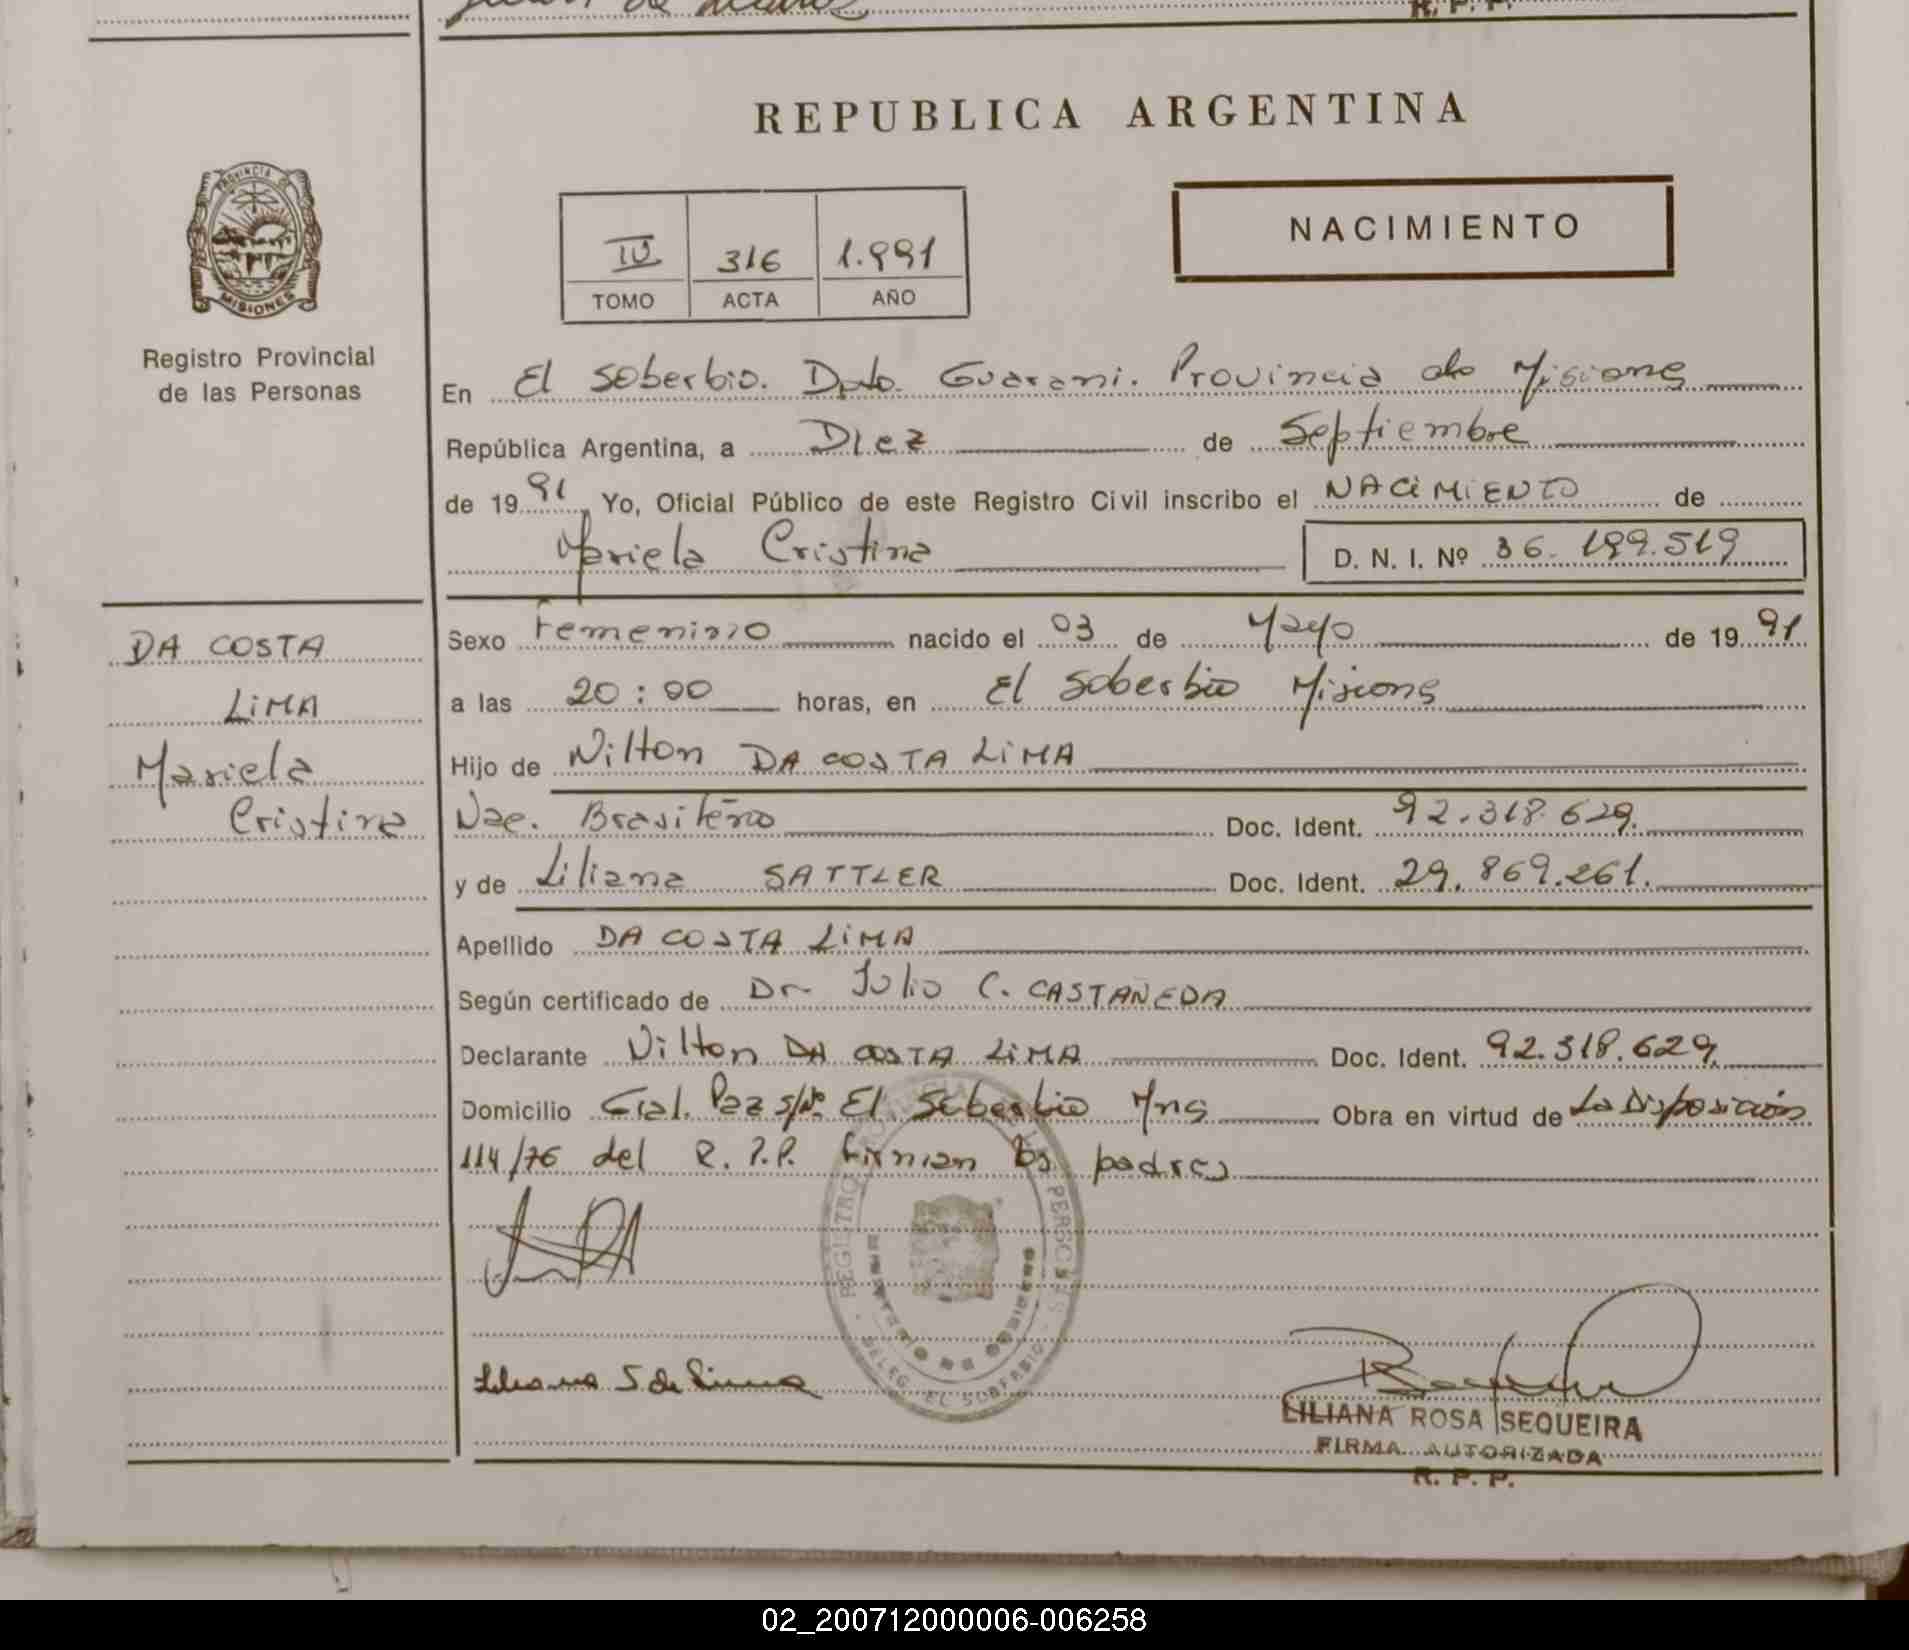 R. P. P.
REPUBLICA ARGENTINA
PROVINCIA DE
MISIONES
Registro Provincial
de las Personas
NACIMIENTO
IV 316 1.991
TOMO ACTA AÑO
En El Soberbio. Dpto. Guarani. Provincia de Misiones
República Argentina, a Diez de Septiembre
de 19 91 Yo, Oficial Público de este Registro Civil inscribo el NACiMiENTO de
Mariela Cristina D. N. I. Nº 36. 199.519
DA COSTA
LiMA
Mariela
Cristina
Sexo Femenino nacido el 03 de Mayo de 19 91
a las 20:00 horas, en El Soberbio Misiones
Hijo de Nilton DA COSTA LiMA
Nac. Brasileño Doc. Ident. 92.318.629.
y de Liliana SATTLER Doc. Ident. 29.869.261.
Apellido DA COSTA LiMA
Según certificado de Dr Julio C. CASTAÑEDA
Declarante Nilton DA COSTA LiMA Doc. Ident. 92.318.629.
Domicilio Gral. Paz s/Nº El Soberbio Mns Obra en virtud de La Disposición
114/76 del R.P.P. firman los padres
REGISTRO PROVINCIAL DE LAS PERSONAS
DELEG. EL SOBERBIO
Liliana S de Lima
LILIANA ROSA SEQUEIRA
FIRMA AUTORIZADA
R. P. P.
02_200712000006-006258